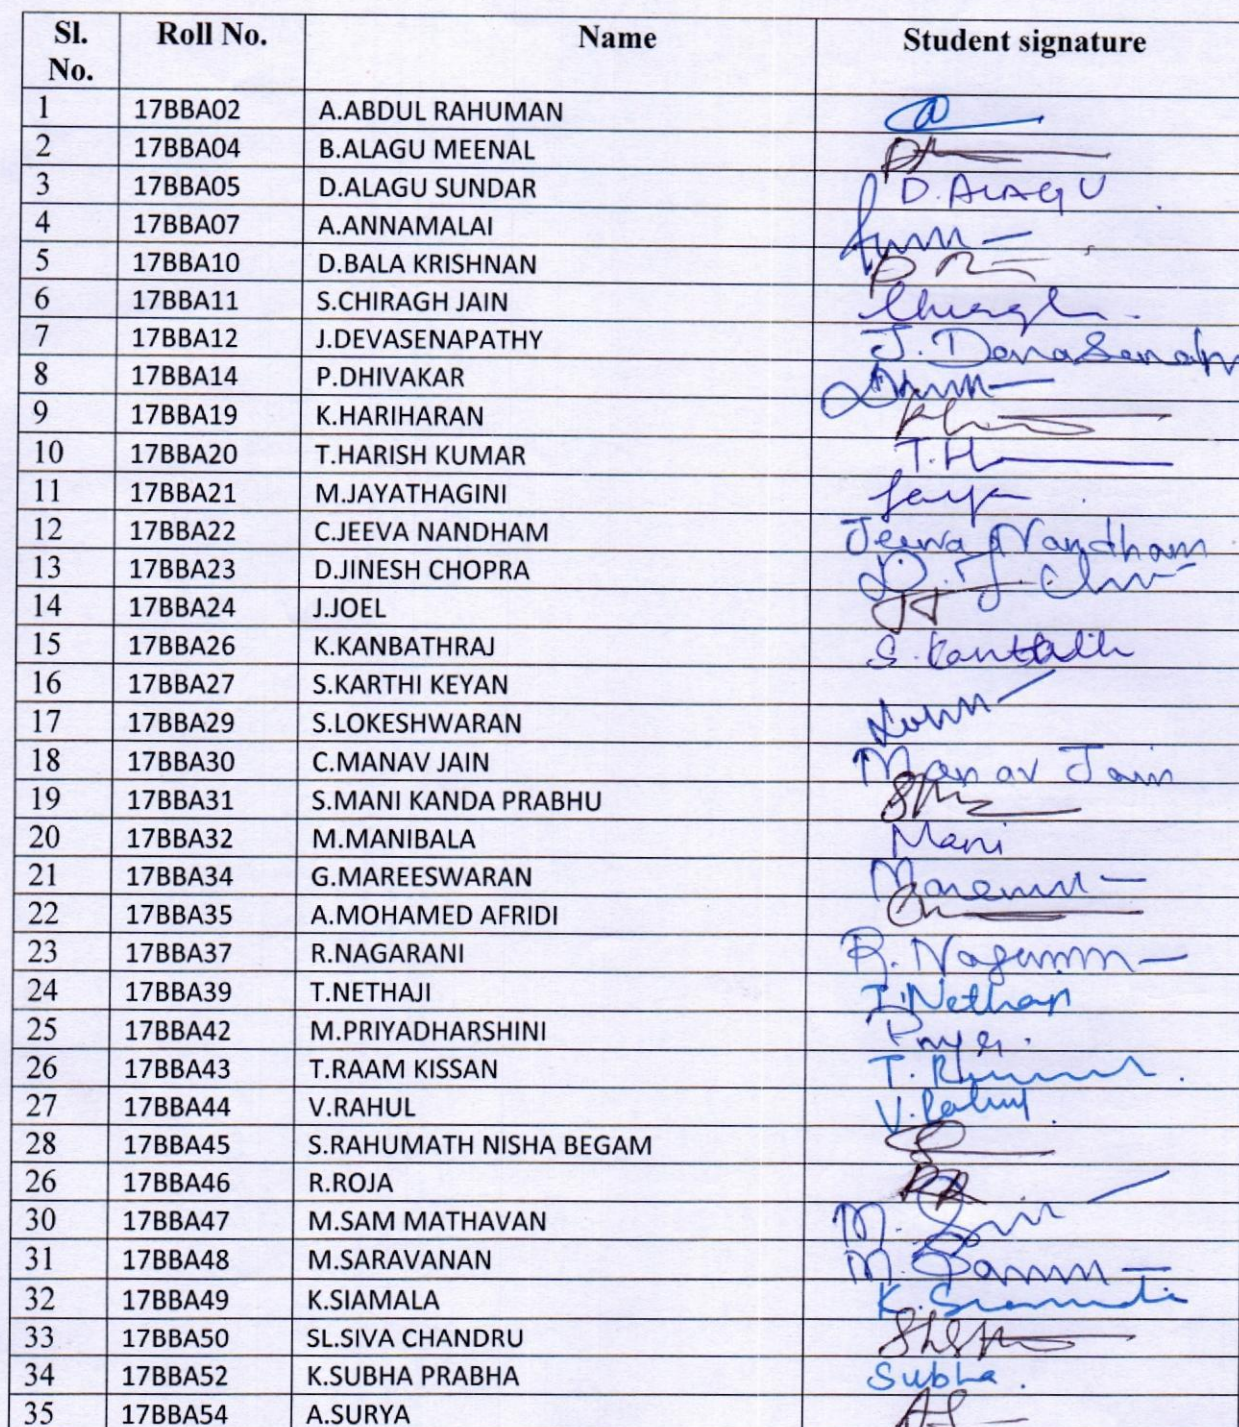 Sl. No. Roll No. Name Student signature
1 17BBA02 A.ABDUL RAHUMAN
2 17BBA04 B.ALAGU MEENAL
3 17BBA05 D.ALAGU SUNDAR D.ALAGU
4 17BBA07 A.ANNAMALAI
5 17BBA10 D.BALA KRISHNAN
6 17BBA11 S.CHIRAGH JAIN
7 17BBA12 J.DEVASENAPATHY
8 17BBA14 P.DHIVAKAR
9 17BBA19 K.HARIHARAN
10 17BBA20 T.HARISH KUMAR
11 17BBA21 M.JAYATHAGINI
12 17BBA22 C.JEEVA NANDHAM Jeeva Nandham
13 17BBA23 D.JINESH CHOPRA
14 17BBA24 J.JOEL
15 17BBA26 K.KANBATHRAJ
16 17BBA27 S.KARTHI KEYAN
17 17BBA29 S.LOKESHWARAN
18 17BBA30 C.MANAV JAIN Manav Jain
19 17BBA31 S.MANI KANDA PRABHU
20 17BBA32 M.MANIBALA Mani
21 17BBA34 G.MAREESWARAN
22 17BBA35 A.MOHAMED AFRIDI
23 17BBA37 R.NAGARANI
24 17BBA39 T.NETHAJI T.Nethaji
25 17BBA42 M.PRIYADHARSHINI
26 17BBA43 T.RAAM KISSAN
27 17BBA44 V.RAHUL V.Rahul
28 17BBA45 S.RAHUMATH NISHA BEGAM
26 17BBA46 R.ROJA
30 17BBA47 M.SAM MATHAVAN
31 17BBA48 M.SARAVANAN
32 17BBA49 K.SIAMALA
33 17BBA50 SL.SIVA CHANDRU
34 17BBA52 K.SUBHA PRABHA Subha.
35 17BBA54 A.SURYA